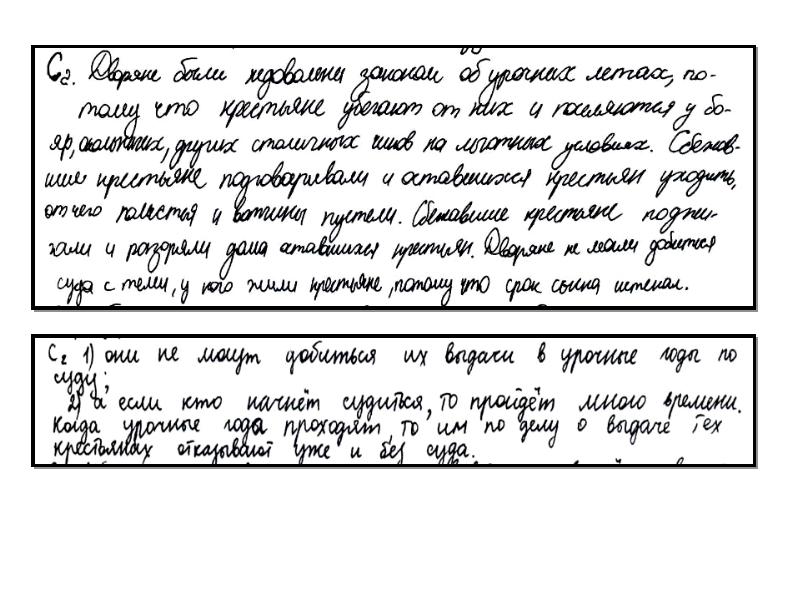 С2. Дворяне были недовольны законом об урочных летах, по-
тому что крестьяне убегают от них и поселяются у бо-
яр, окольничих, других столичных чинов на льготных условиях. Сбежав-
шие крестьяне подговаривали и оставшихся крестьян уходить,
от чего поместья и вотчины пустели. Сбежавшие крестьяне поджи-
гали и разоряли дома оставшихся крестьян. Дворяне не могли добиться
суда с теми, у кого жили крестьяне, потому что срок сыска истекал.
С2 1) они не могут добиться их выдачи в урочные годы по
суду;
2) а если кто начнёт судиться, то пройдёт много времени.
Когда урочные года проходят, то им по делу о выдаче тех
крестьянах отказывают уже и без суда.